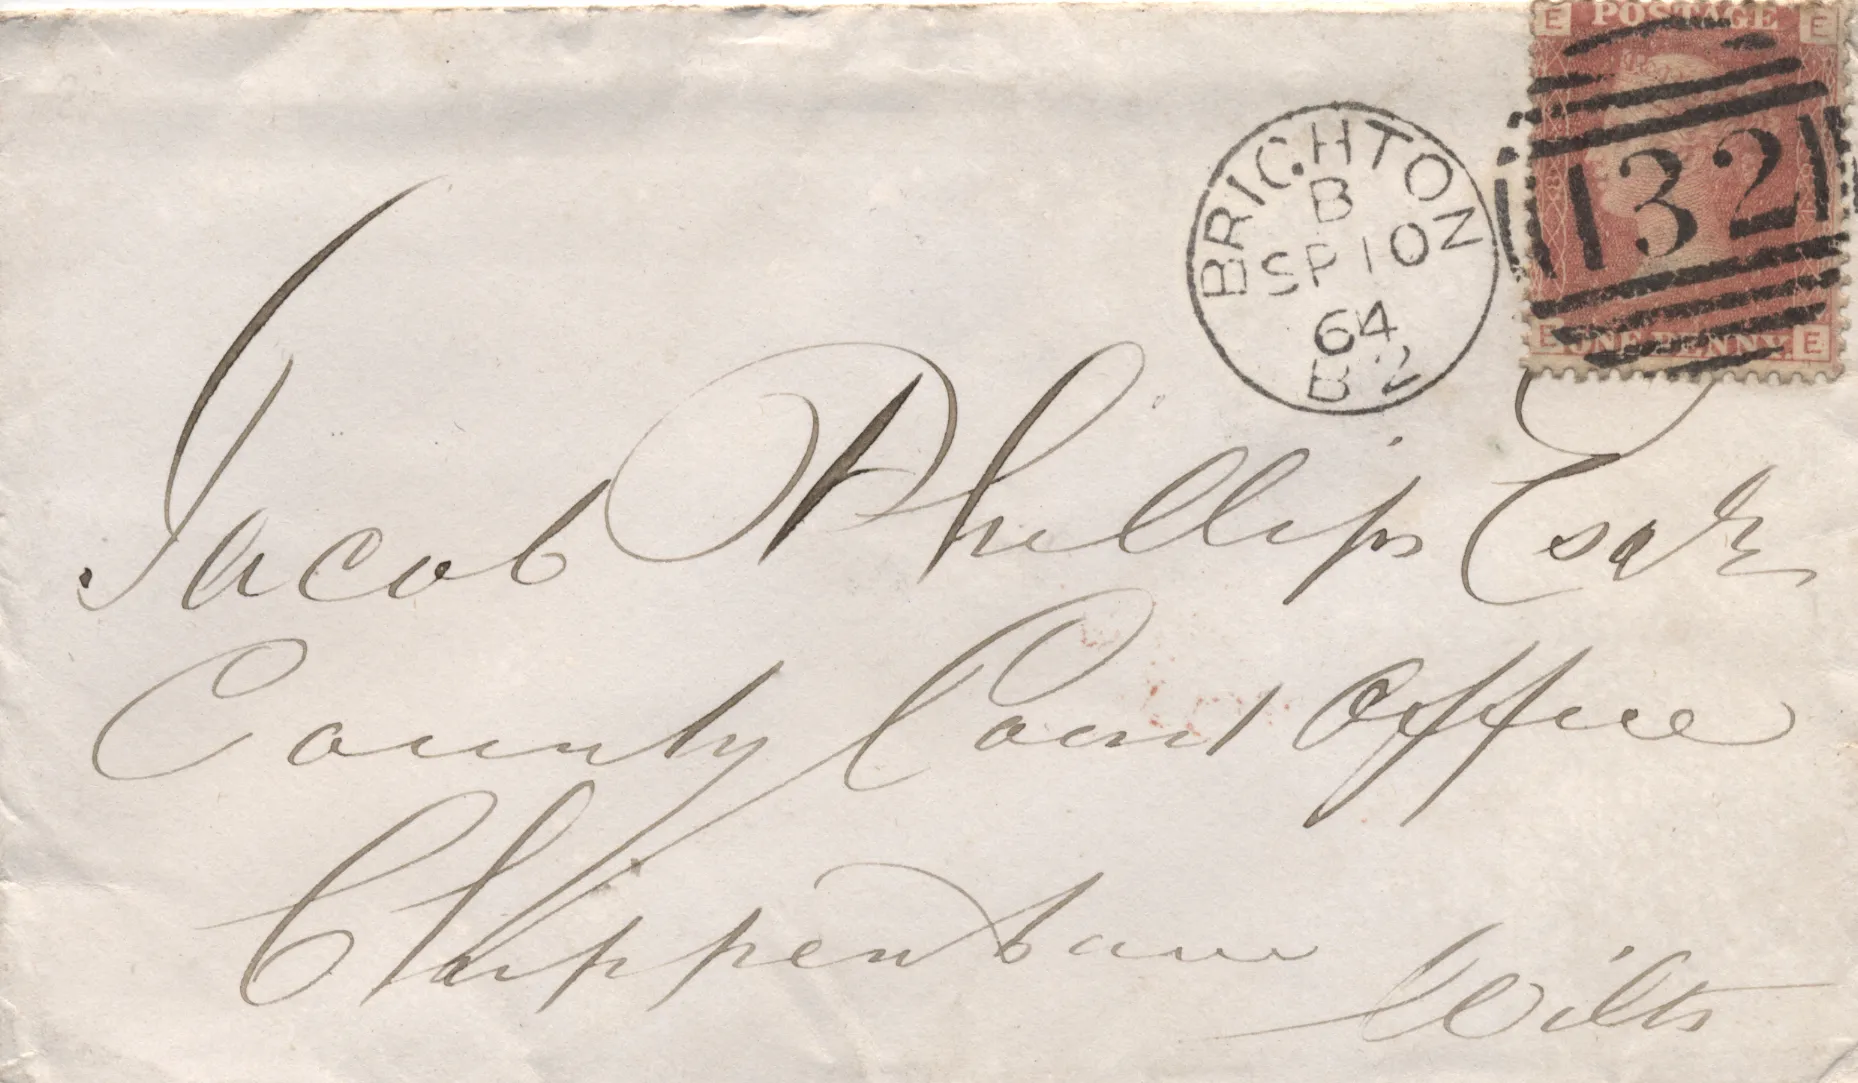 E POSTAGE E
BRIGHTON
B
SP 10
64
B 2
132
E ONE PENNY. E
Jacob Phillips Esqr
County Court Office
Chippenham
Wilts